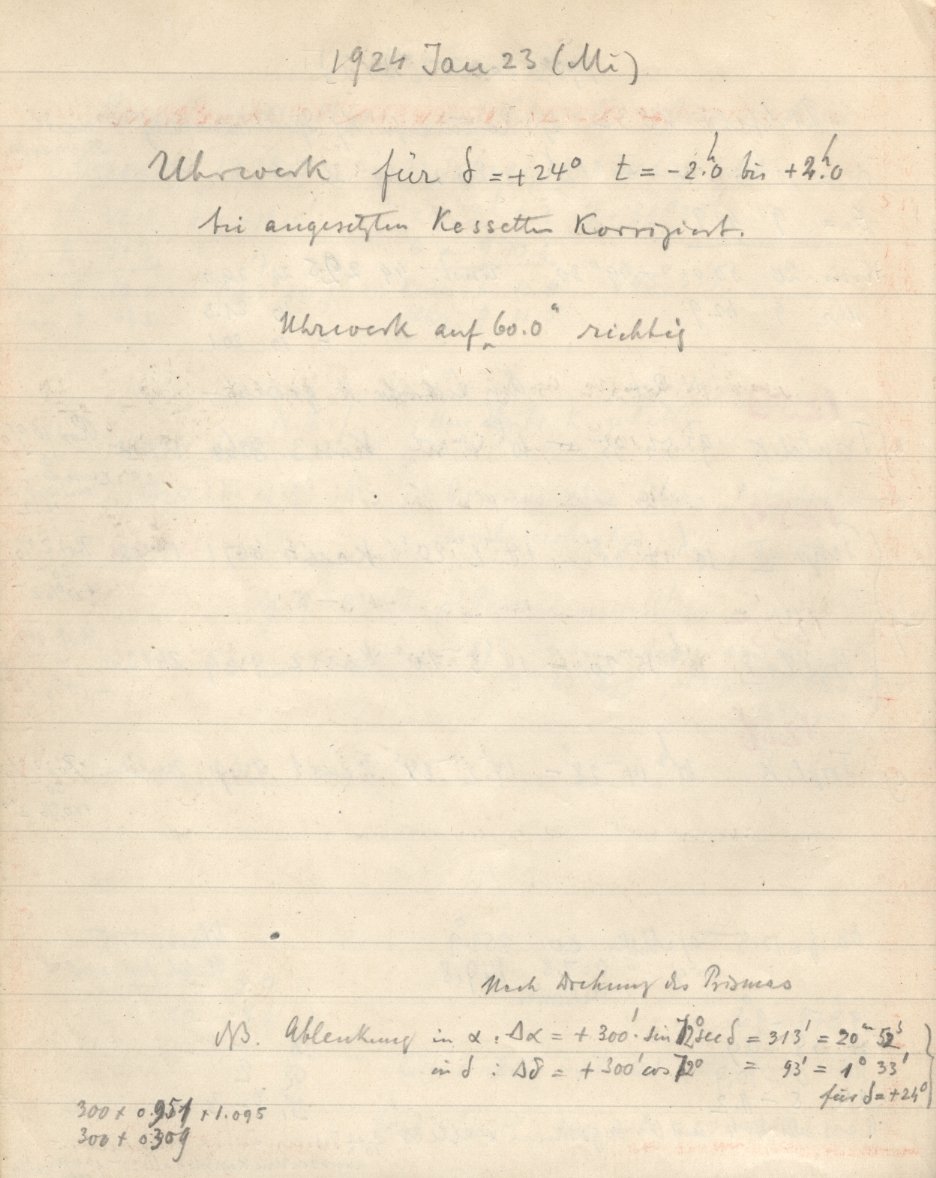 1924 Jan 23 (Mi)
Uhrwerk für δ = +24° t = -2.ʰ0 bis +2.ʰ0
bei angesetzten Kassetten Korrigiert.
Uhrwerk auf 60.0" richtig
Nach Drehung des Prismas
NB. Ablenkung in α : Δα = + 300'. sin 72° sec δ = 313' = 20ᵐ 52ˢ
in δ : Δδ = + 300' cos 72° = 93' = 1° 33'
für δ = +24°
300 × 0.951 × 1.095
300 × 0.309